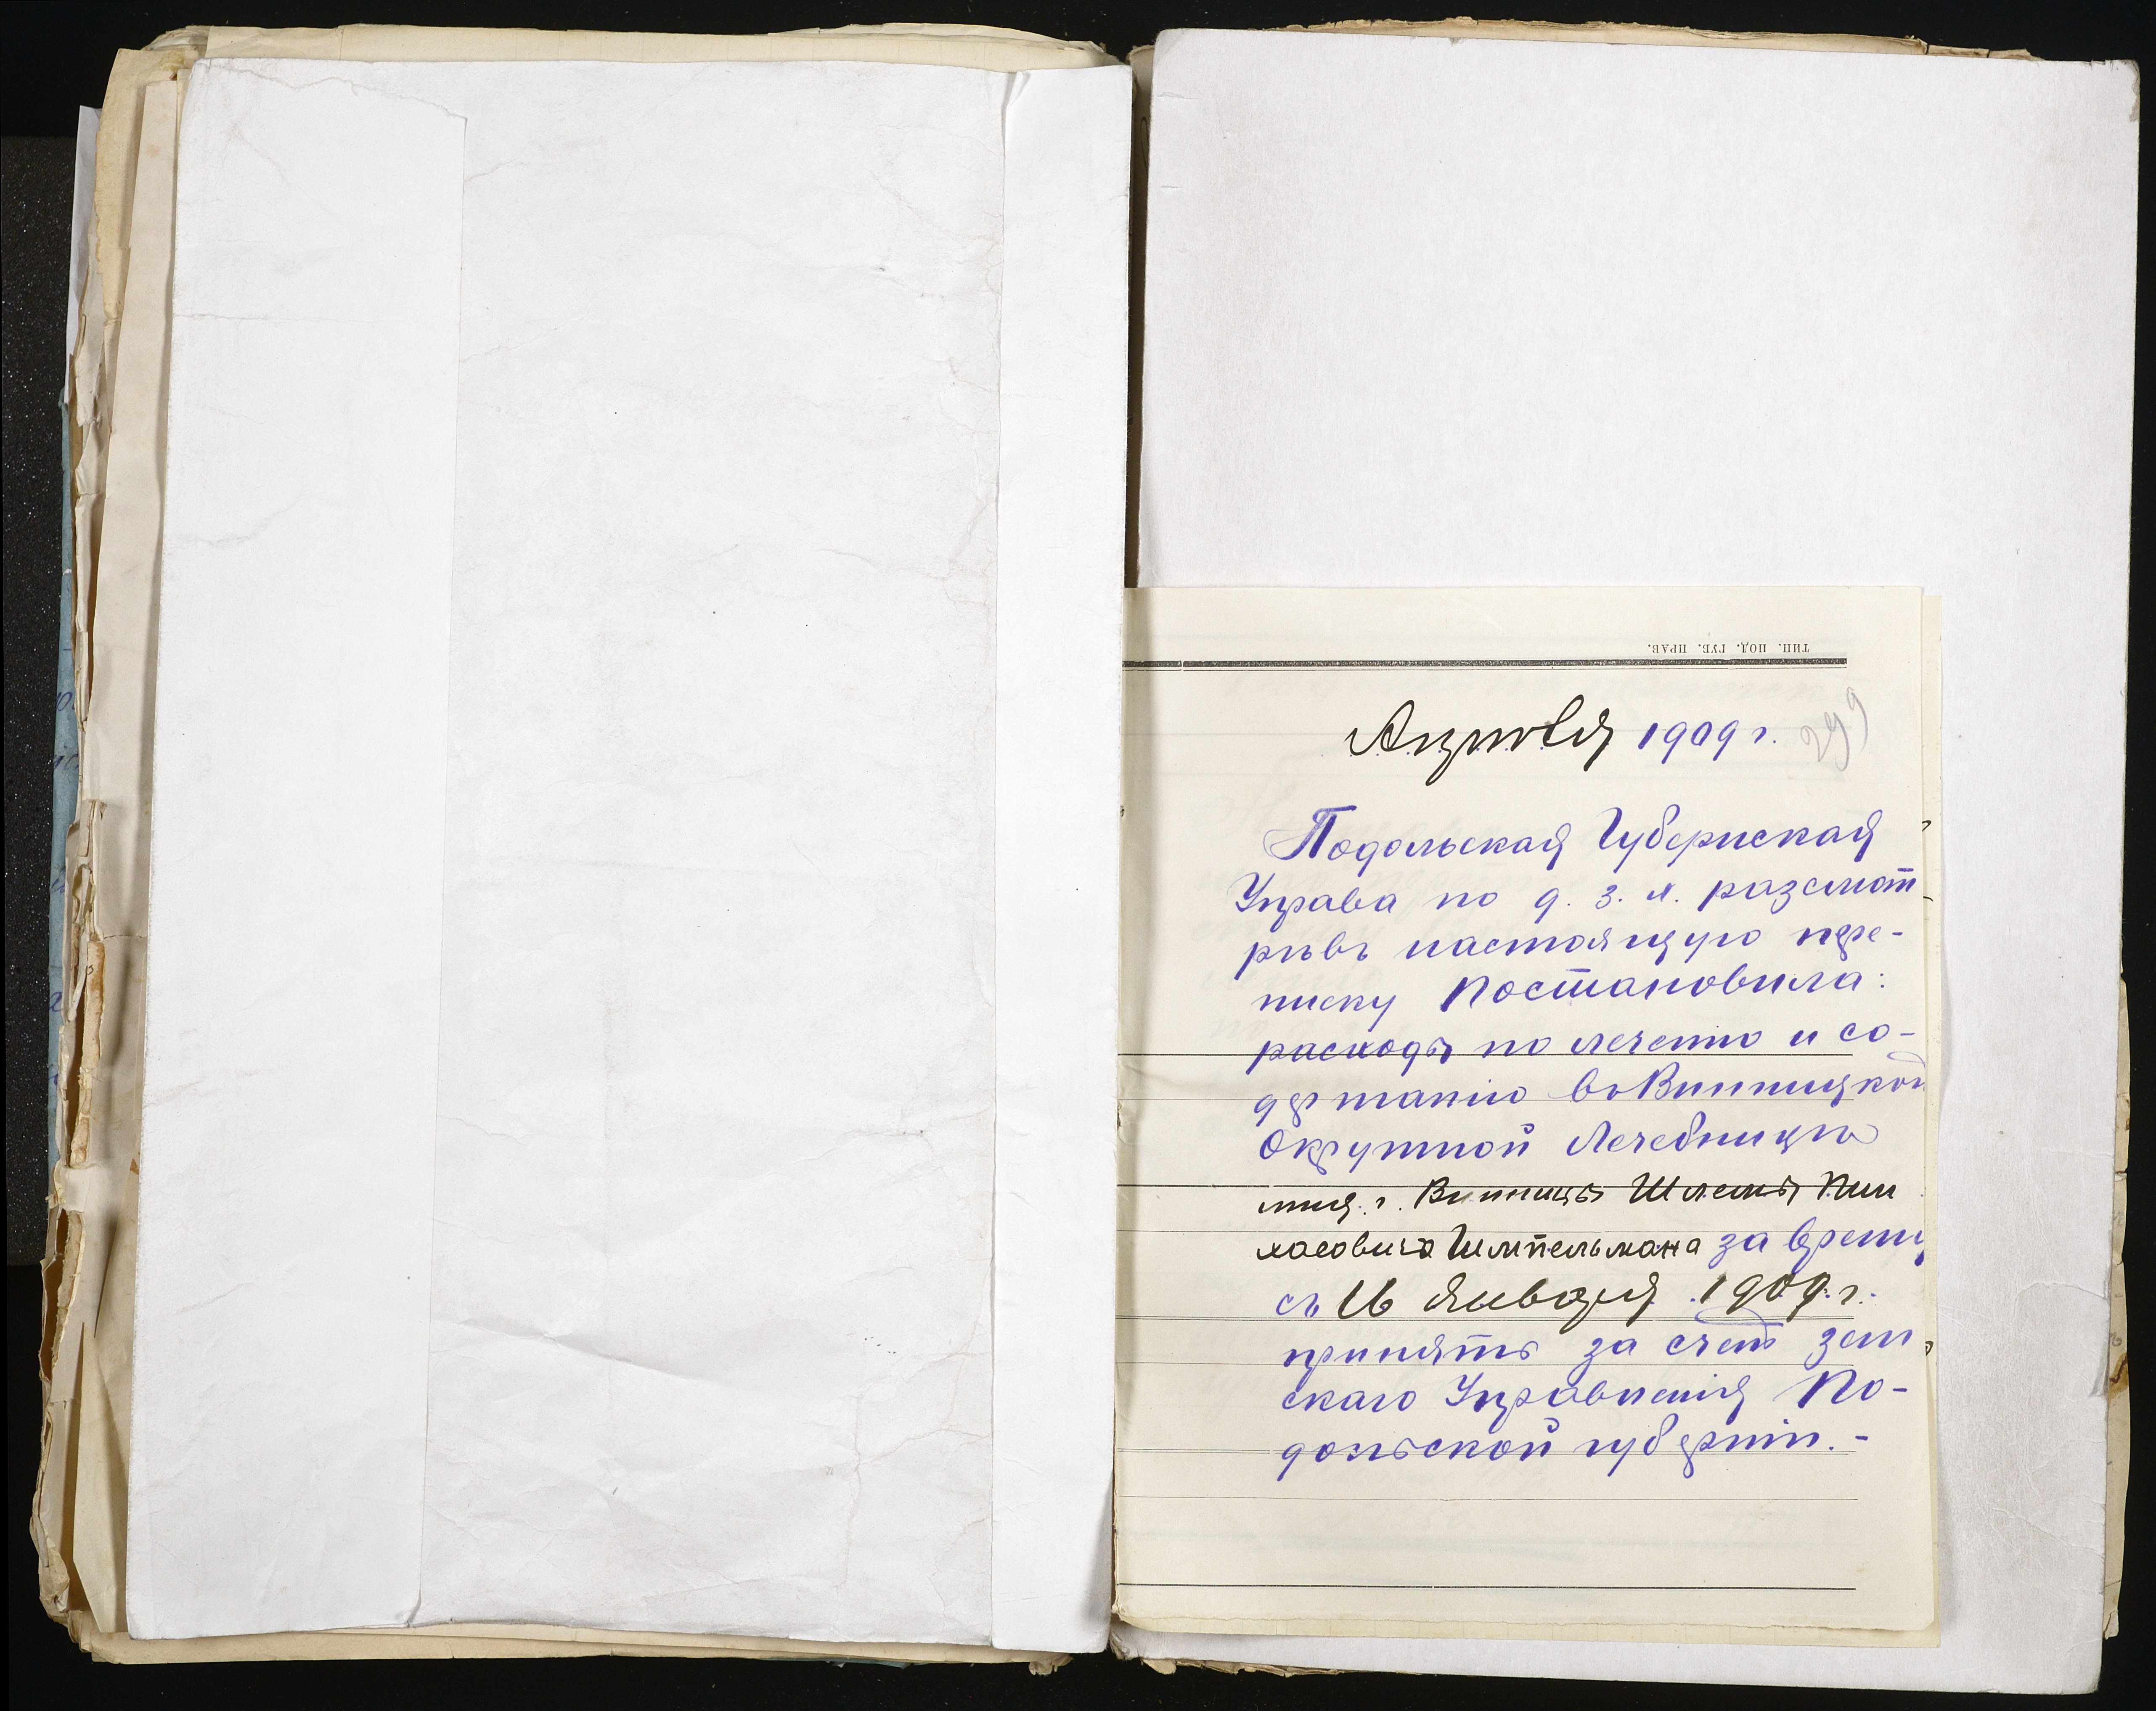 ТИП. ПОД. ГУБ. ПРАВ.
Апрѣля 1909 г.
299
Подольская Губернская
Управа по д. з. х. разсмот-
рѣвъ настоящую пере-
писку постановила:
расходы по леченію и со-
держанію въ Винницкой
Окружной Лечебницѣ
мѣщ. г. Винницы Шлемы Пин
хасовича Шмпельмана за время
съ 16 Января 1909 г.
принять за счетъ зем-
скаго Управленія По-
дольской губерніи.-